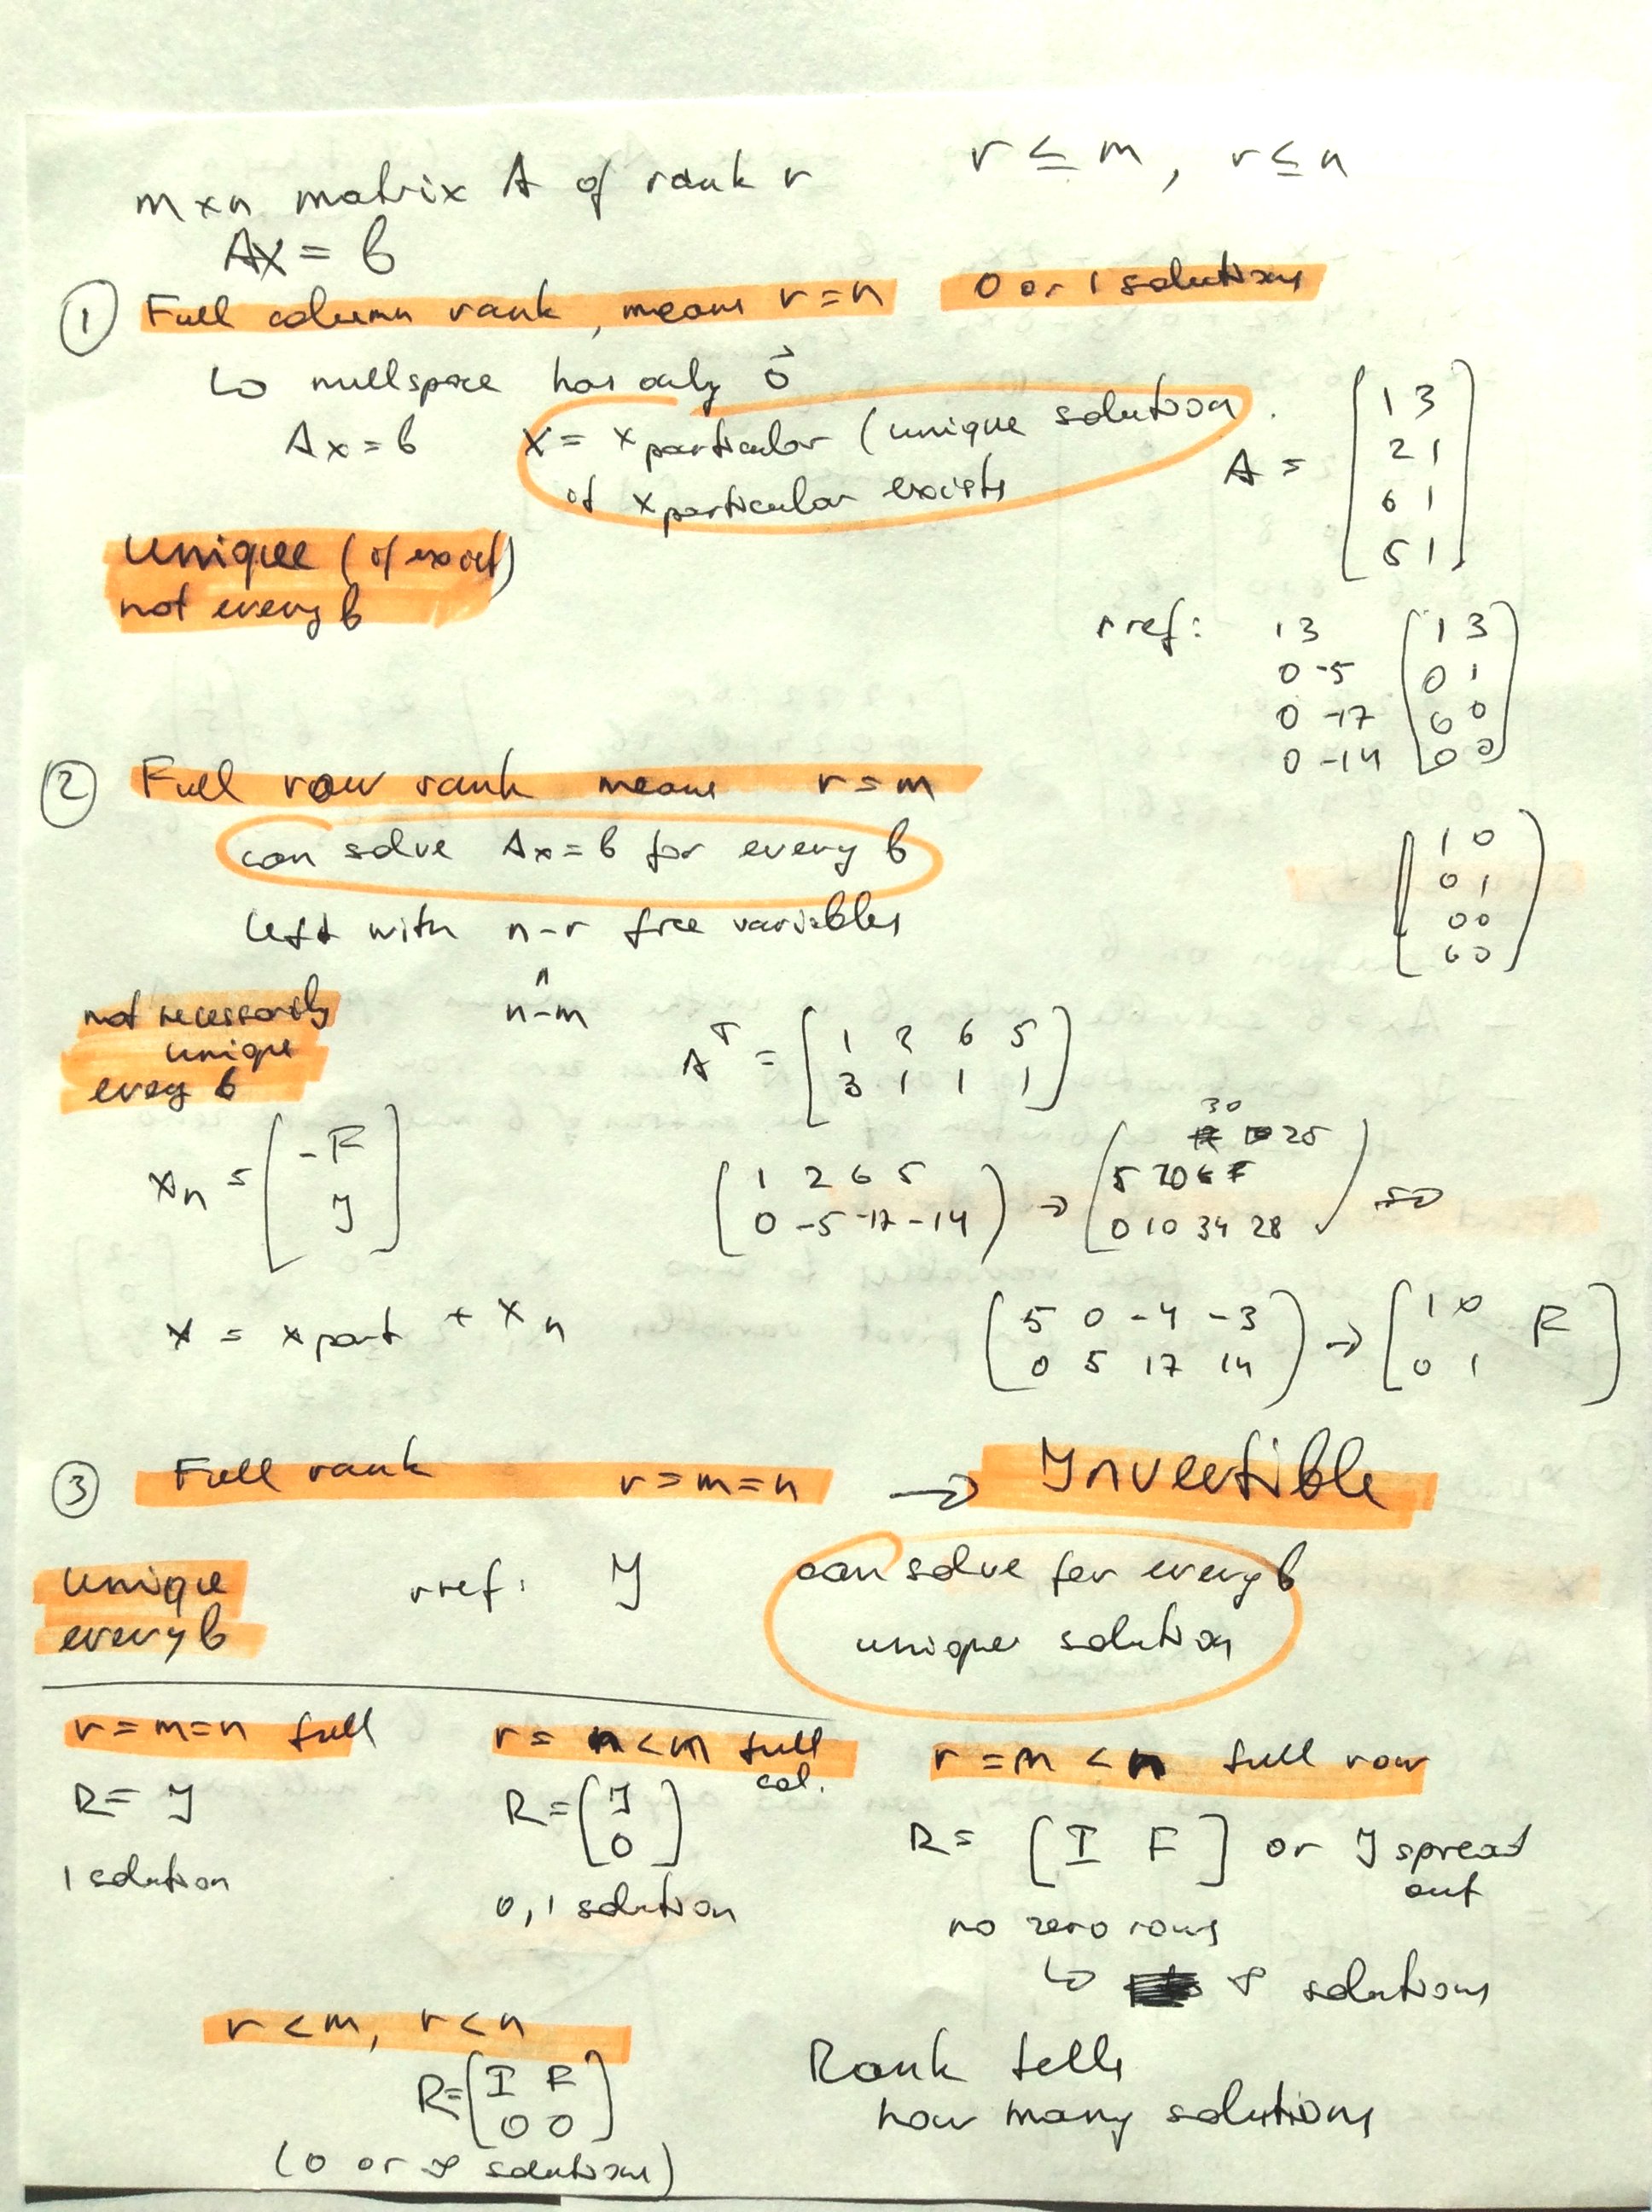 m×n matrix A of rank r   r ≤ m, r ≤ n
Ax = b
① Full column rank, means r=n   0 or 1 solutions
↳ nullspace has only 0⃗
Ax=b   x = x particular (unique solution
if x particular exists
A = [1 3
2 1
6 1
5 1]
unique (if exist)
not every b
rref: 1 3   [1 3
0 -5   0 1
0 -17   0 0
0 -14   0 0]
[1 0
0 1
0 0
0 0]
② Full row rank means r=m
can solve Ax=b for every b
left with n-r free variables
n-m
not necessarily
unique
every b
Aᵀ = [1 2 6 5
3 1 1 1]
xn = [-F
I]
[1 2 6 5
0 -5 -17 -14] → [5 10 30 25
0 10 34 28] →
[5 0 -4 -3
0 5 17 14] → [1 0 F
0 1]
x = x part + xn
③ Full rank   r=m=n → Invertible
unique
every b
rref: I
can solve for every b
unique solution
r=m=n full
R = I
1 solution
r = n<m full
col.
R = [I
0]
0, 1 solution
r = m < n full row
R = [I F] or I spread
out
no zero rows
↳ ∞ solutions
r<m, r<n
R=[I F
0 0]
(0 or ∞ solutions)
Rank tells
how many solutions